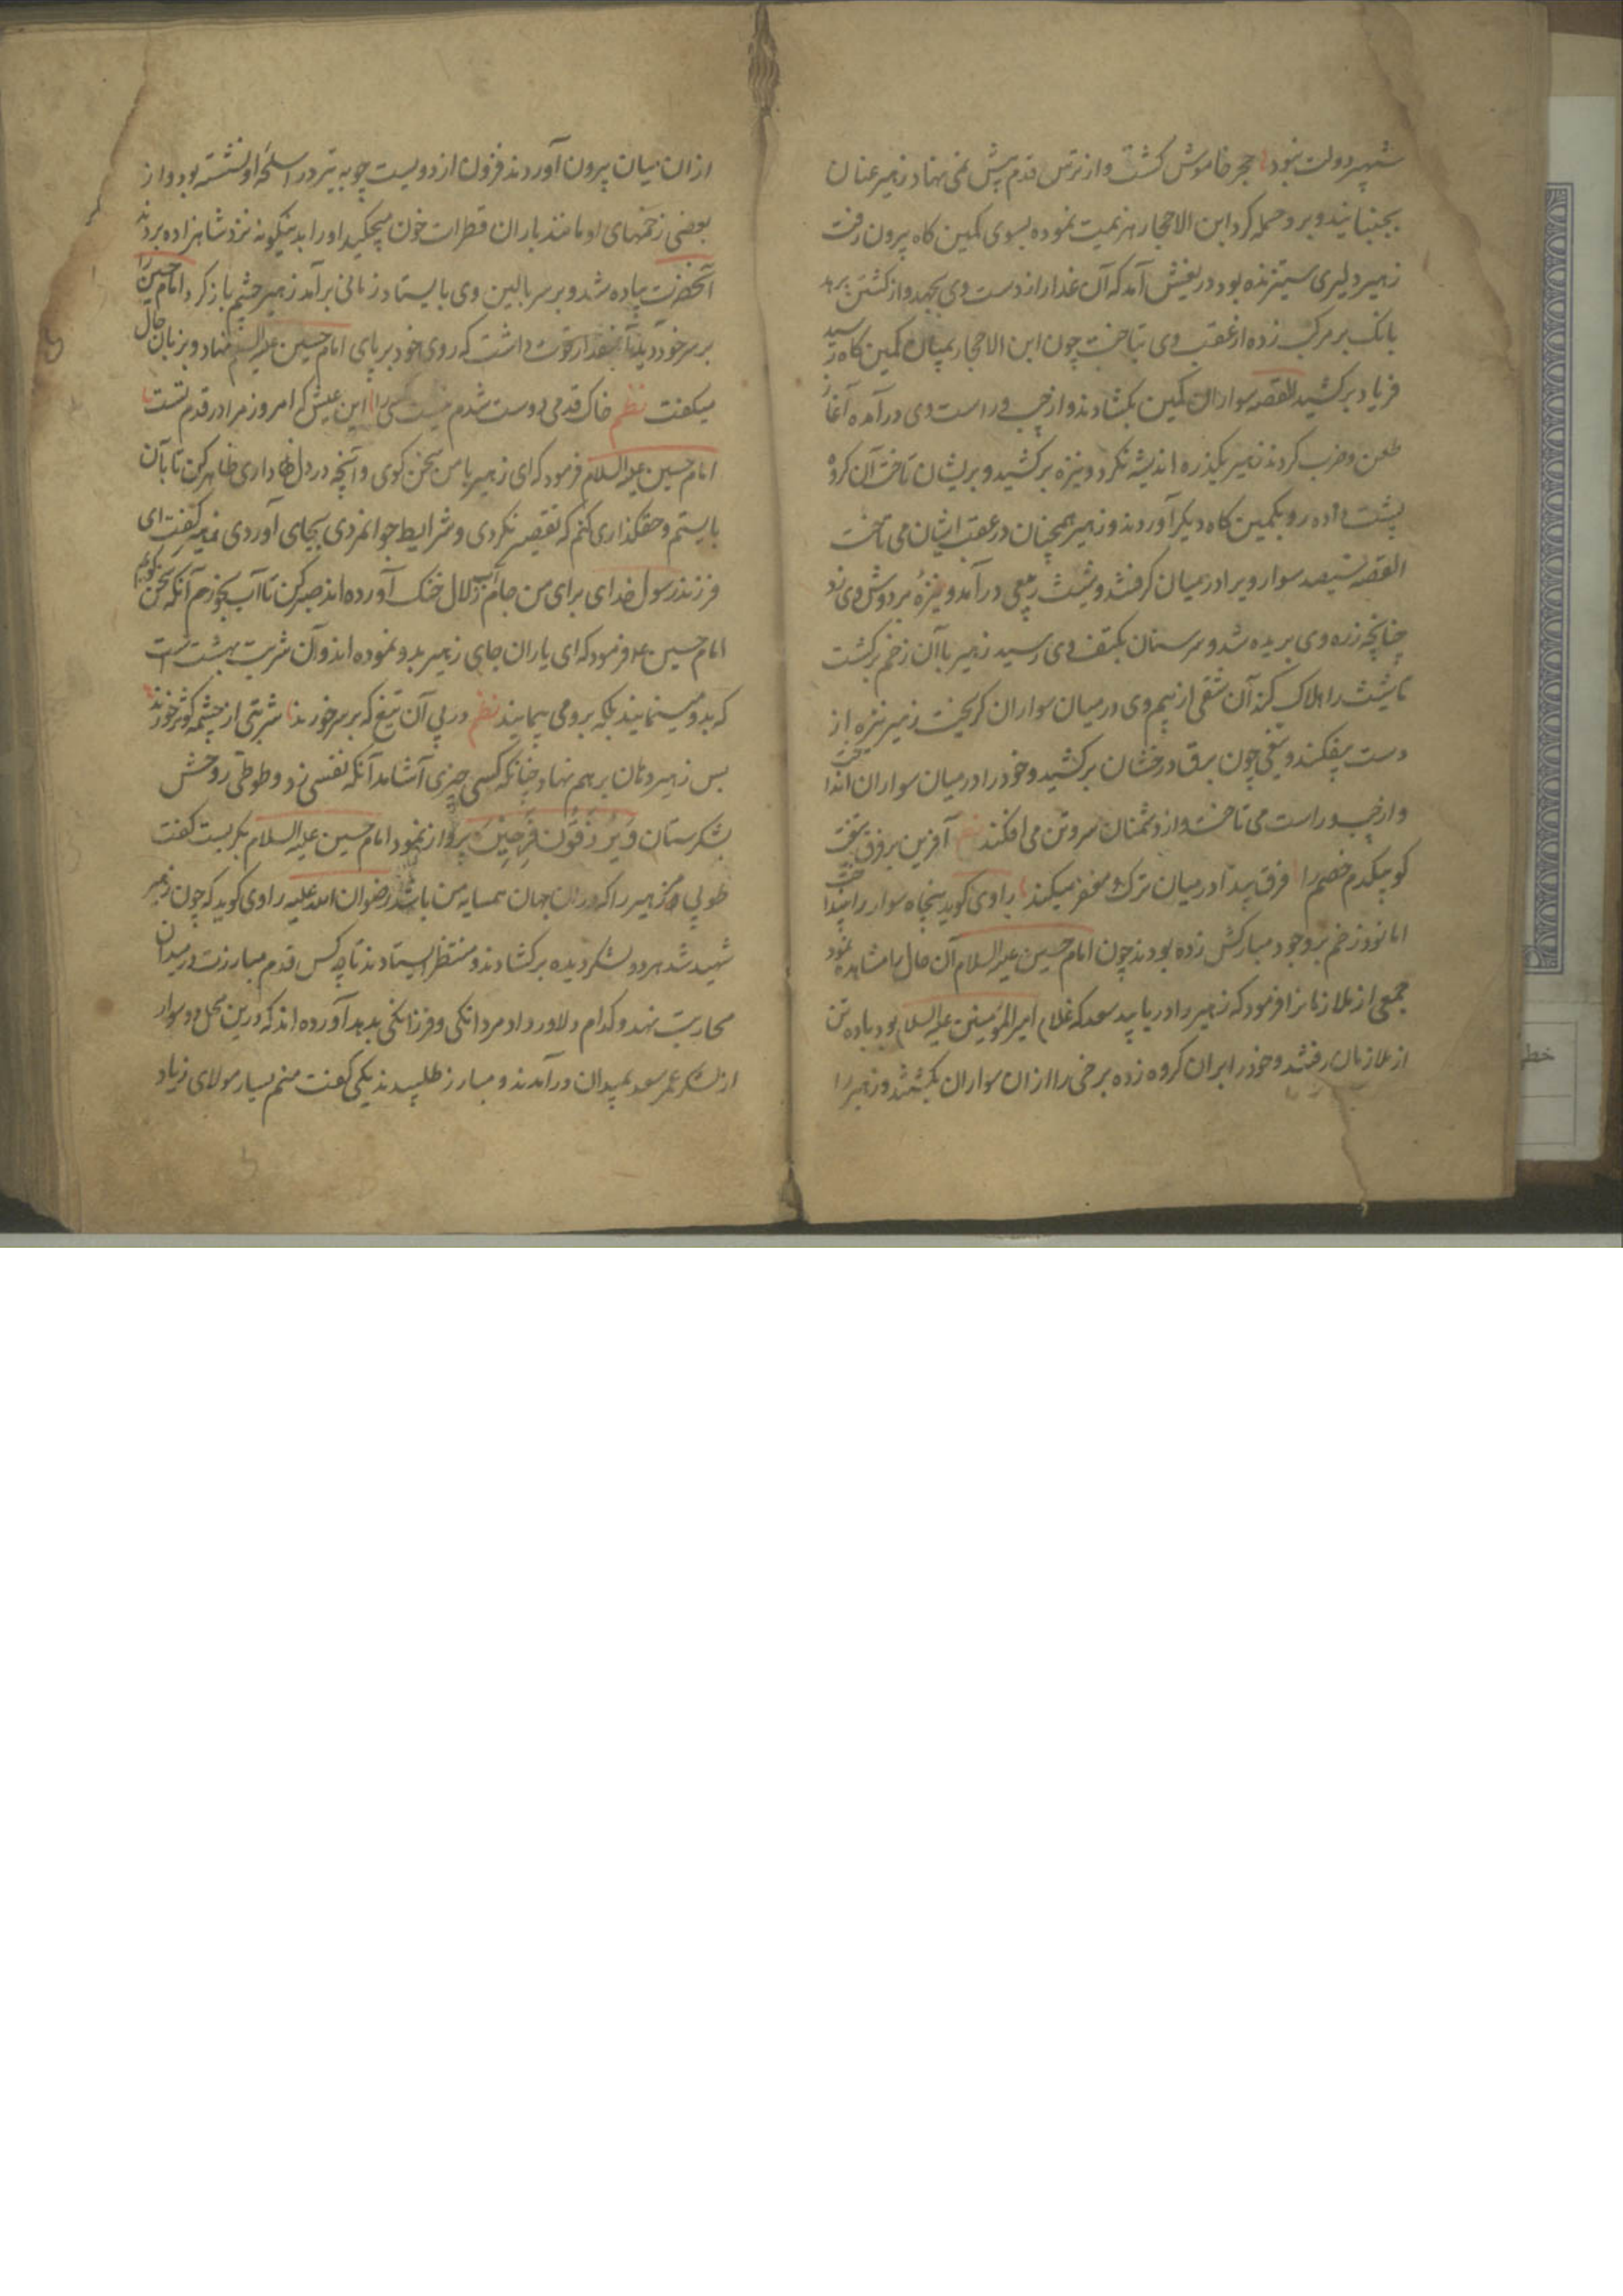 شهپر دولت نبود حجر خاموش کشت و از ترس قدم پیش نمی نهاد زهیر عنان
بجنبانید و برو حمله کرد ابن الاحجار هزیمت نموده بسوی کمین کاه بیرون رفت
زهیر دلیری ستیزنده بود دریغش آمد که آن غدار از دست وی بجهد و از کشتن برهد
بانک بر مرکب زده از عقب وی بتاخت چون ابن الاحجار بمیان کمین کاه رسید
فریاد برکشید القصه سواران کمین بکشادند و از چپ و راست وی درآمده آغاز
طعن و ضرب کردند زهیر یکذره اندیشه نکرد و نیزه برکشید و بریشان تاخت آن کروه
پشت داده رو بکمین کاه دیکر آوردند و زهیر همچنان در عقب ایشان می تاخت
القصه سیصد سوار ویرا درمیان کرفتند و شیث ربعی درآمد و نیزه بر دوش وی زد
چنانچه زره وی بریده شد و سرسنان بکتف وی رسید زهیر با آن زخم برکشت
تا شیث را هلاک کند آن شقی از بیم وی در میان سواران کریخت زهیر نیزه از
دست بیفکند و تیغی چون برق درخشان برکشید و خود را در میان سواران انداخت
و از چپ و راست می تاخت و از دشمنان سر و تن می افکند نظم آفرین بر فرق تیغت
کو بیکدم خصم را فرق پیدا در میان ترک و مغفر میکند راوی کوید پنجاه سوار را بینداخت
اما نود زخم بر وجود مبارکش زده بودند چون امام حسین علیه السلام آن حال را مشاهده نمود
جمعی از ملازمانرا فرمود که زهیر را دریابید سعد که غلام امیرالمؤمنین علیه السلام بود با ده تن
از ملازمان رفتند و خود را بران کروه زده برخی را ازان سواران بکشتند و زهیر را
ازان میان بیرون آوردند فزون از دویست چوبه تیر در اسلحه او نشسته بود و از
بعضی زخمهای او مانند باران قطرات خون میچکید او را بدینکونه نزد شاهزاده بردند
آنحضرت پیاده شد و بر سر بالین وی بایستاد زمانی برآمد زهیر چشم باز کرد امام حسین را
بر سر خود دید آنمقدار قوت داشت که روی خود بر پای امام حسین علیه السلام نهاد و بزبان حال
میکفت نظم خاک قدمی دوست شدم کسی را این عیش که امروز مرا در قدم تست
امام حسین علیه السلام فرمود که ای زهیر با من سخن کوی و آنچه در دل داری ظاهر کن تا بآن
بایستم و حقکذاری کنم که تقصیر نکردی و شرایط جوانمردی بجای آوردی زهیر کفت ای
فرزند رسول خدای برای من جام آب زلال خنک آورده اند صبر کن تا آب بخورم آنکه سخن کویم
امام حسین ع فرمود که ای یاران جای زهیر بدو نموده اند و آن شربت بهشت است
که بدو مینمایند بلکه برو می پیمایند نظم در پی آن تیغ که بر سر خورند شربتی از چشمه کوثر خورند
بس زهیر دهان برهم نهاد چنانکه کسی چیزی آشامد آنکه نفسی زد و طوطی روحش
بشکرستان وَیُرزَقُونَ فَرِحِینَ پرواز نمود امام حسین علیه السلام بکریست کفت
طوبی مر زهیر را که دران جهان همسایه من باشد رضوان الله علیه راوی کوید که چون زهیر
شهید شد هر دو لشکر دیده برکشادند و منتظر ایستادند تا چه کس قدم مبارزت در میدان
محاربت نهد و کدام دلاور داد مردانکی و فرزانکی بدهد آورده اند که درین محل دو سوار
از لشکر عمر سعد بمیدان درآمدند و مبارز طلبیدند یکی کفت منم یسار مولای زیاد
خطی